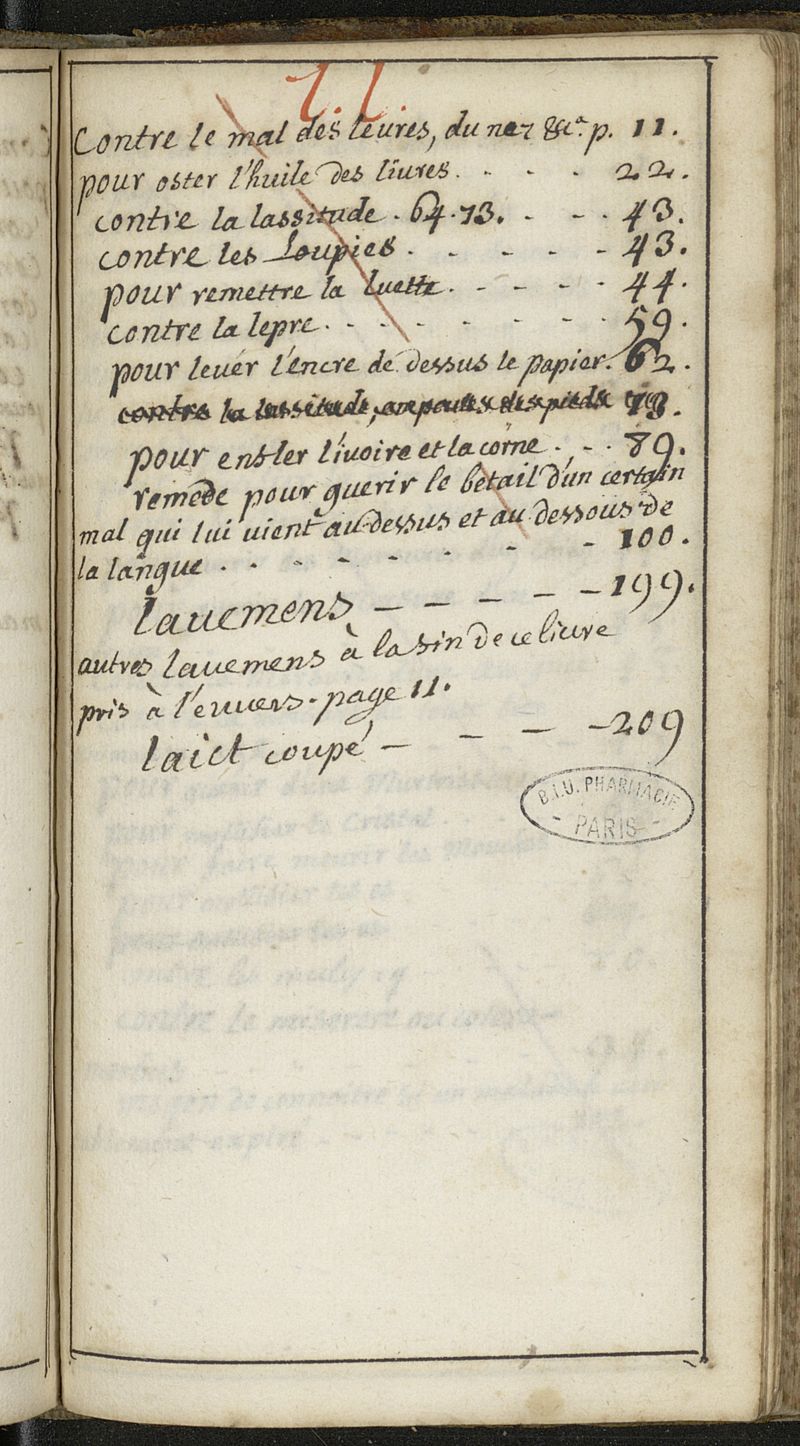 L l
Contre le mal des leures, du nez &c.a p. 11.
pour oster l'huile des liures. - - - 22.
contre la lassitude. 64. 73. - - - 43.
contre les Loupies - - - - - 43.
pour remettre la luette. - - - - 44.
contre la lepre. - - - - - - - 59.
pour leuer l'encre de dessus le papier. 62.
contre la lassitude, ampoules des pieds 73.
pour enfler l'iuoire et la corne. - - 89.
remede pour guerir le betail d'un certain
mal qui lui uient au dessus et au dessous de
la langue - - - - - - - 100.
lauemens - - - - - 199.
autres lauemens à la fin de ce liure
pris à l'enuers. page 11.
laict coupé - - - - 209
B.I.U. PHARMACIE
- PARIS -